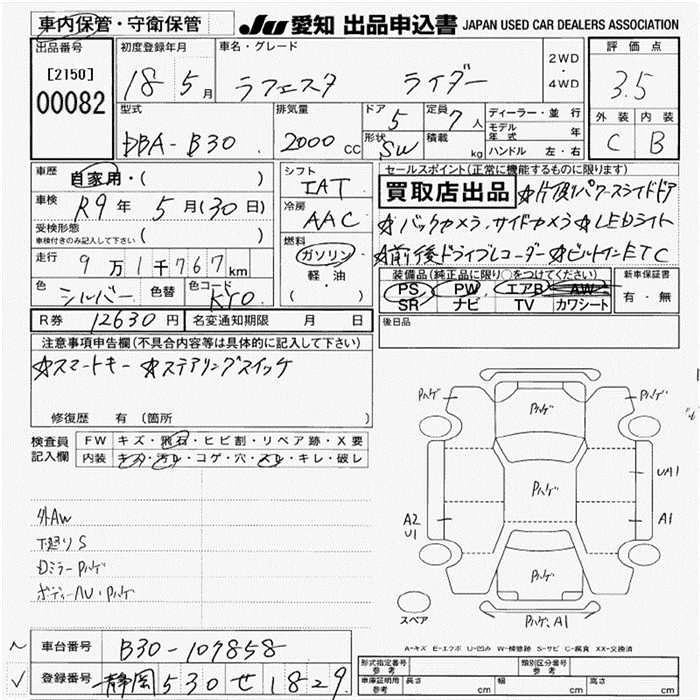 車内保管・守衛保管 JU 愛知 出品申込書 JAPAN USED CAR DEALERS ASSOCIATION
出品番号 初度登録年月 車名・グレード 評価点
[2150] 18年 5月 ラフェスタ ライダー 2WD・4WD 3.5
00082
型式 排気量 ドア 5 定員 7人 ディーラー・並行 外装 内装
DBA-B30 2000cc 形状 SW 積載 kg モデル年式 年 C B
ハンドル 左・右
車歴 自家用・( ) シフト IAT セールスポイント(正常に機能するものに限ります)
車検 R9年 5月(30日) 冷房 AAC 買取店出品 ☆片側パワースライドドア
受検形態 車検付きのみ記入して下さい ( ) ☆バックカメラ,サイドカメラ☆LEDライト
走行 9万1千767km 燃料 ガソリン・軽油 ( ) ☆前後ドライブレコーダー ☆ビルトインETC
色 シルバー 色替 色コード KY0 装備品(純正品に限り○をつけてください) 新車保証書
PS PW エアB AW 有・無
SR ナビ TV カワシート
R券 12630円 名変通知期限 月 日 後日品
注意事項申告欄(不具合内容等は具体的に記入して下さい)
☆スマートキー ☆ステアリングスイッチ
修復歴 有(箇所 )
検査員記入欄 FW キズ・飛石・ヒビ割・リペア跡・X要
内装 キズ・汚レ・コゲ・穴・スレ・キレ・破レ
外AW
下廻りS
DミラーPハゲ
ボディーAU・Pハゲ
Pハゲ Pハゲ Pハゲ
Pハゲ UA1
A2 U1 A1
Pハゲ
スペア Pハゲ、A1
A-キズ E-エクボ U-凹み W-補修跡 S-サビ C-腐食 XX-交換済
車台番号 B30-107858
登録番号 静岡 530 せ 1829
型式指定番号 参考 類別区分番号 参考
車庫証明用 参考 長さ cm 幅 cm 高さ cm